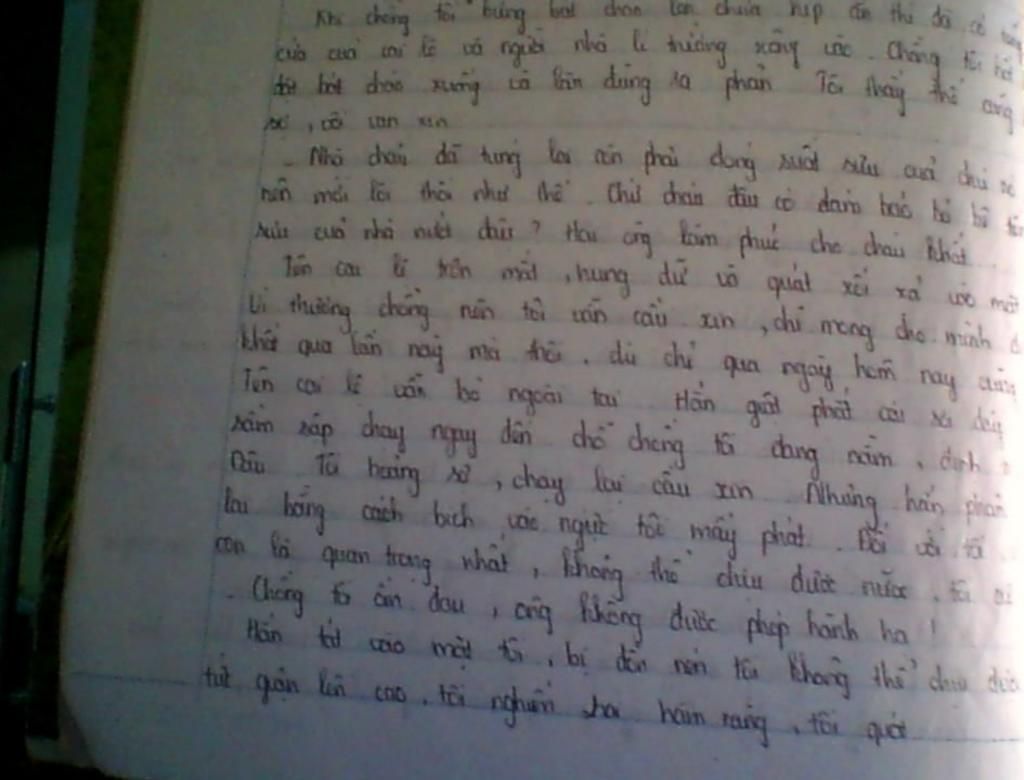 Khi chồng tôi bưng bát cháo lên chưa kịp ăn thì đã có tiếng
của cai lệ và người nhà lí trưởng xông vào. Chồng tôi
đặt bát cháo xuống và lăn đùng ra phản Tôi thấy thế cũng
sợ, vội van xin
- Nhà cháu đã túng lại còn phải đóng suất sưu của chú
nên mới lôi thôi như thế. Chứ cháu đâu có dám bỏ bê tiền
sưu của nhà nước chứ? Hai ông làm phúc cho cháu khất
Tên cai lệ trợn mắt, hung dữ và quát xối xả vào mặt
Vì thương chồng nên tôi vẫn cầu xin, chỉ mong cho mình
khất qua lần này mà thôi. dù chỉ qua ngày hôm nay cũng
Tên cai lệ vẫn bỏ ngoài tai Hắn giật phắt cái dây
sầm sập chạy ngay đến chỗ chồng tôi đang nằm, định
Dậu Tôi hoảng sợ, chạy lại cầu xin Nhưng hắn phản
lại bằng cách bịch vào ngực tôi mấy phát. Đối với tôi
con là quan trọng nhất, không thể chịu được nữa. tôi
- Chồng tôi ốm đau, ông không được phép hành hạ!
Hắn tát vào mặt tôi, bị dồn nén tôi không thể chịu được
tức giận lên cao. tôi nghiến hai hàm răng, tôi quát